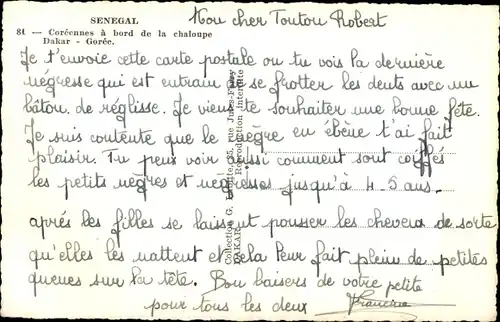 SENEGAL
81 — Goréennes à bord de la chaloupe
Dakar - Gorée.
Mon cher Toutou Robert
Je t'envoie cette carte postale ou tu vois la dernière
négresse qui est entrain de se frotter les dents avec un
bâton de réglisse. Je viens te souhaiter une bonne fête.
Je suis contente que le nègre en ébène t'ai fait
plaisir. Tu peux voir aussi comment sont coiffés
les petits nègres et négresses jusqu'à 4-5 ans.
après les filles se laissent pousser les cheveux de sorte
qu'elles les nattent et cela leur fait plein de petites
queues sur la tête. Bon baisers de votre petite
pour tous les deux
Reproduction interdite